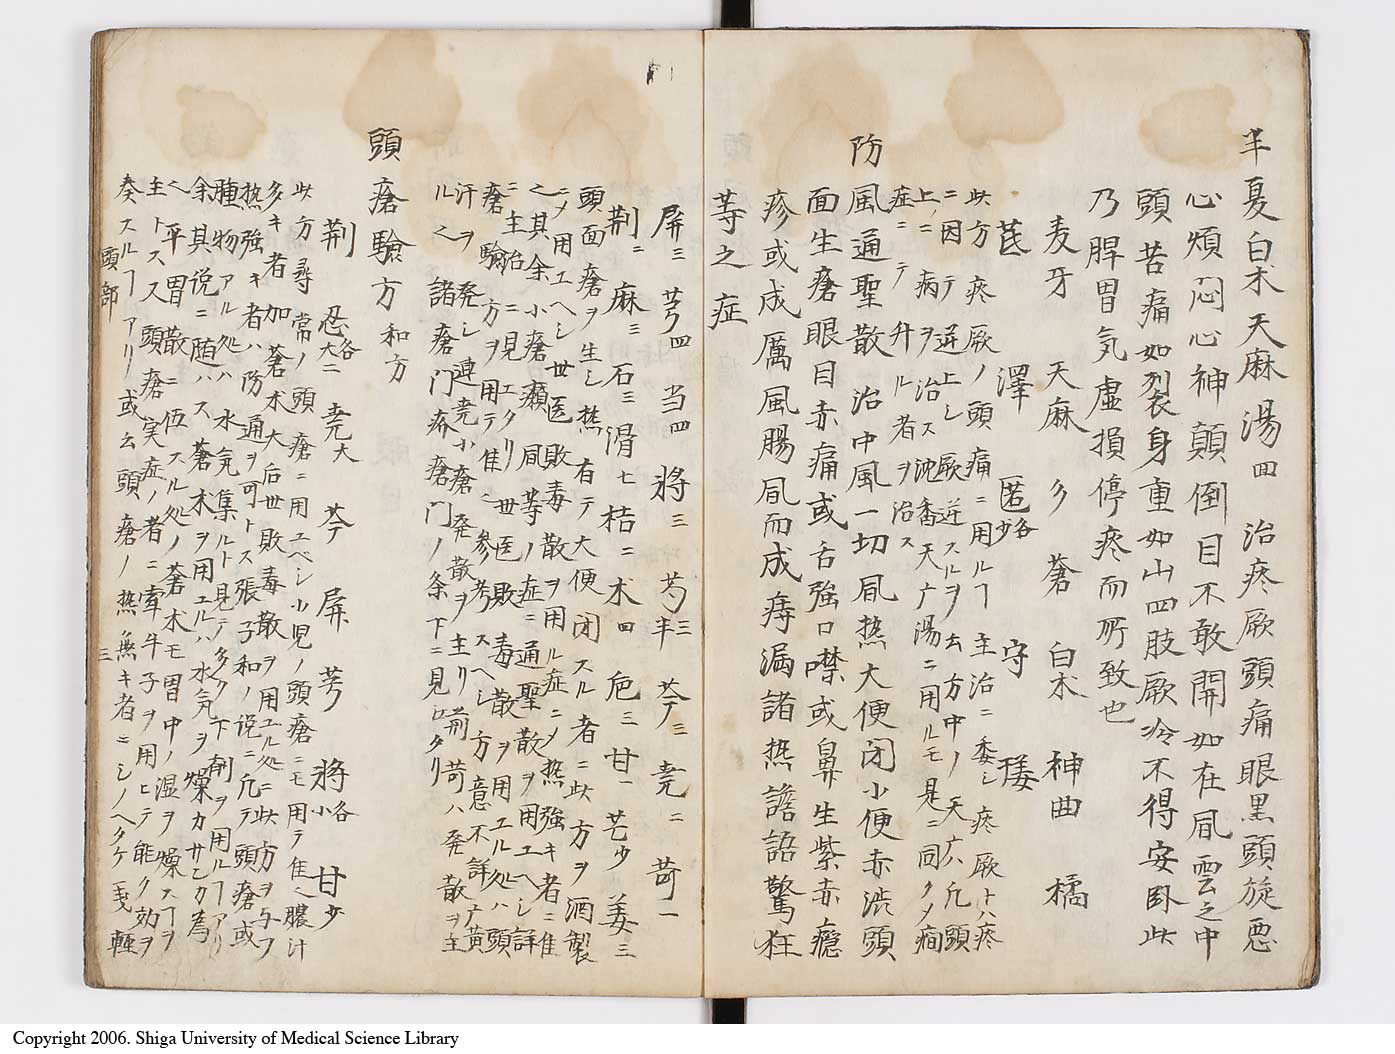 半夏白朮天麻湯四 治痰厥頭痛眼黒頭旋悪
心煩悶心神顛倒目不敢開如在凬雲之中
頭苦痛如裂身重如山四肢厥冷不得安卧此
乃脾胃気虚損停痰而所致也
麦牙 天麻 夕 蒼 白朮 神曲 橘
茋 澤 匿各少 守 倭
此方痰厥ノ頭痛ニ用ルヿ主治ニ委シ痰厥トハ痰
ニ因テ逆上シ厥逆スルヲ云方中ノ天广凡頭
上ノ病ヲ治ス沈香天广湯ニ用ルモ是ニ同クメ
症ニテ升ル者ヲ治ス
防風通聖散 治中風一切凬热大便閉小便赤渋頭
面生瘡眼目赤痛或舌強口噤或鼻生紫赤癮
疹或成厲風腸凬而成痔漏諸热譫語驚狂
等之症
屏三 芎四 当四 將三 芍三半 芩三 堯二 苛一
荆二 麻三 石三 滑七 桔二 朮四 梔三 甘一 芒少 姜三
頭面瘡ヲ生シ热有テ大便閉スル者ニ此方ヲ酒製
ニメ用エヘシ世医敗毒散ヲ用ル症ニメ热強キ者ニ隹
之其余小瘡癩凬等ノ症ニ通聖散ヲ用エヘシ詳
ニ主治ニ見エタリ世医敗毒散ヲ用エル処ハ頭
瘡驗方ヲ用テ隹シ参考スヘシ方意不詳广黄
汗ヲ発シ連堯小瘡発散ヲ主リ荊苛ハ発散ヲ主
ル之 諸瘡門疥瘡門ノ条下ニ見エタリ
頭瘡驗方 和方
荆 忍各大二 堯大 芩 屏 芎 將各小 甘少
此方尋常ノ頭瘡ニ用ユベシ小児ノ頭瘡ニモ用テ隹シ膿汁
多キ者加蒼朮大后世敗毒散ヲ用エル処ニ此方ヲ与フ
热強キ者ハ防通ヲ可トス張子和ノ说ニ凢テ頭瘡或
腫物アル処ハ水気集ルト見テ多ク下剤ヲ用ルヿアリ
余其说ニ随ハス蒼朮ヲ用エルハ水気ヲ燥カサンカ為
之平胃散ニ伍スル処ノ蒼朮モ胃中ノ湿ヲ燥スヿヲ
主トスス頭瘡実症ノ者ニ牽牛子ヲ用ヒテ能ク効ヲ
奏スルヿアリ或云頭瘡ノ热無キ者ニシノヘタケ 輕
頭部 三
Copyright 2006. Shiga University of Medical Science Library